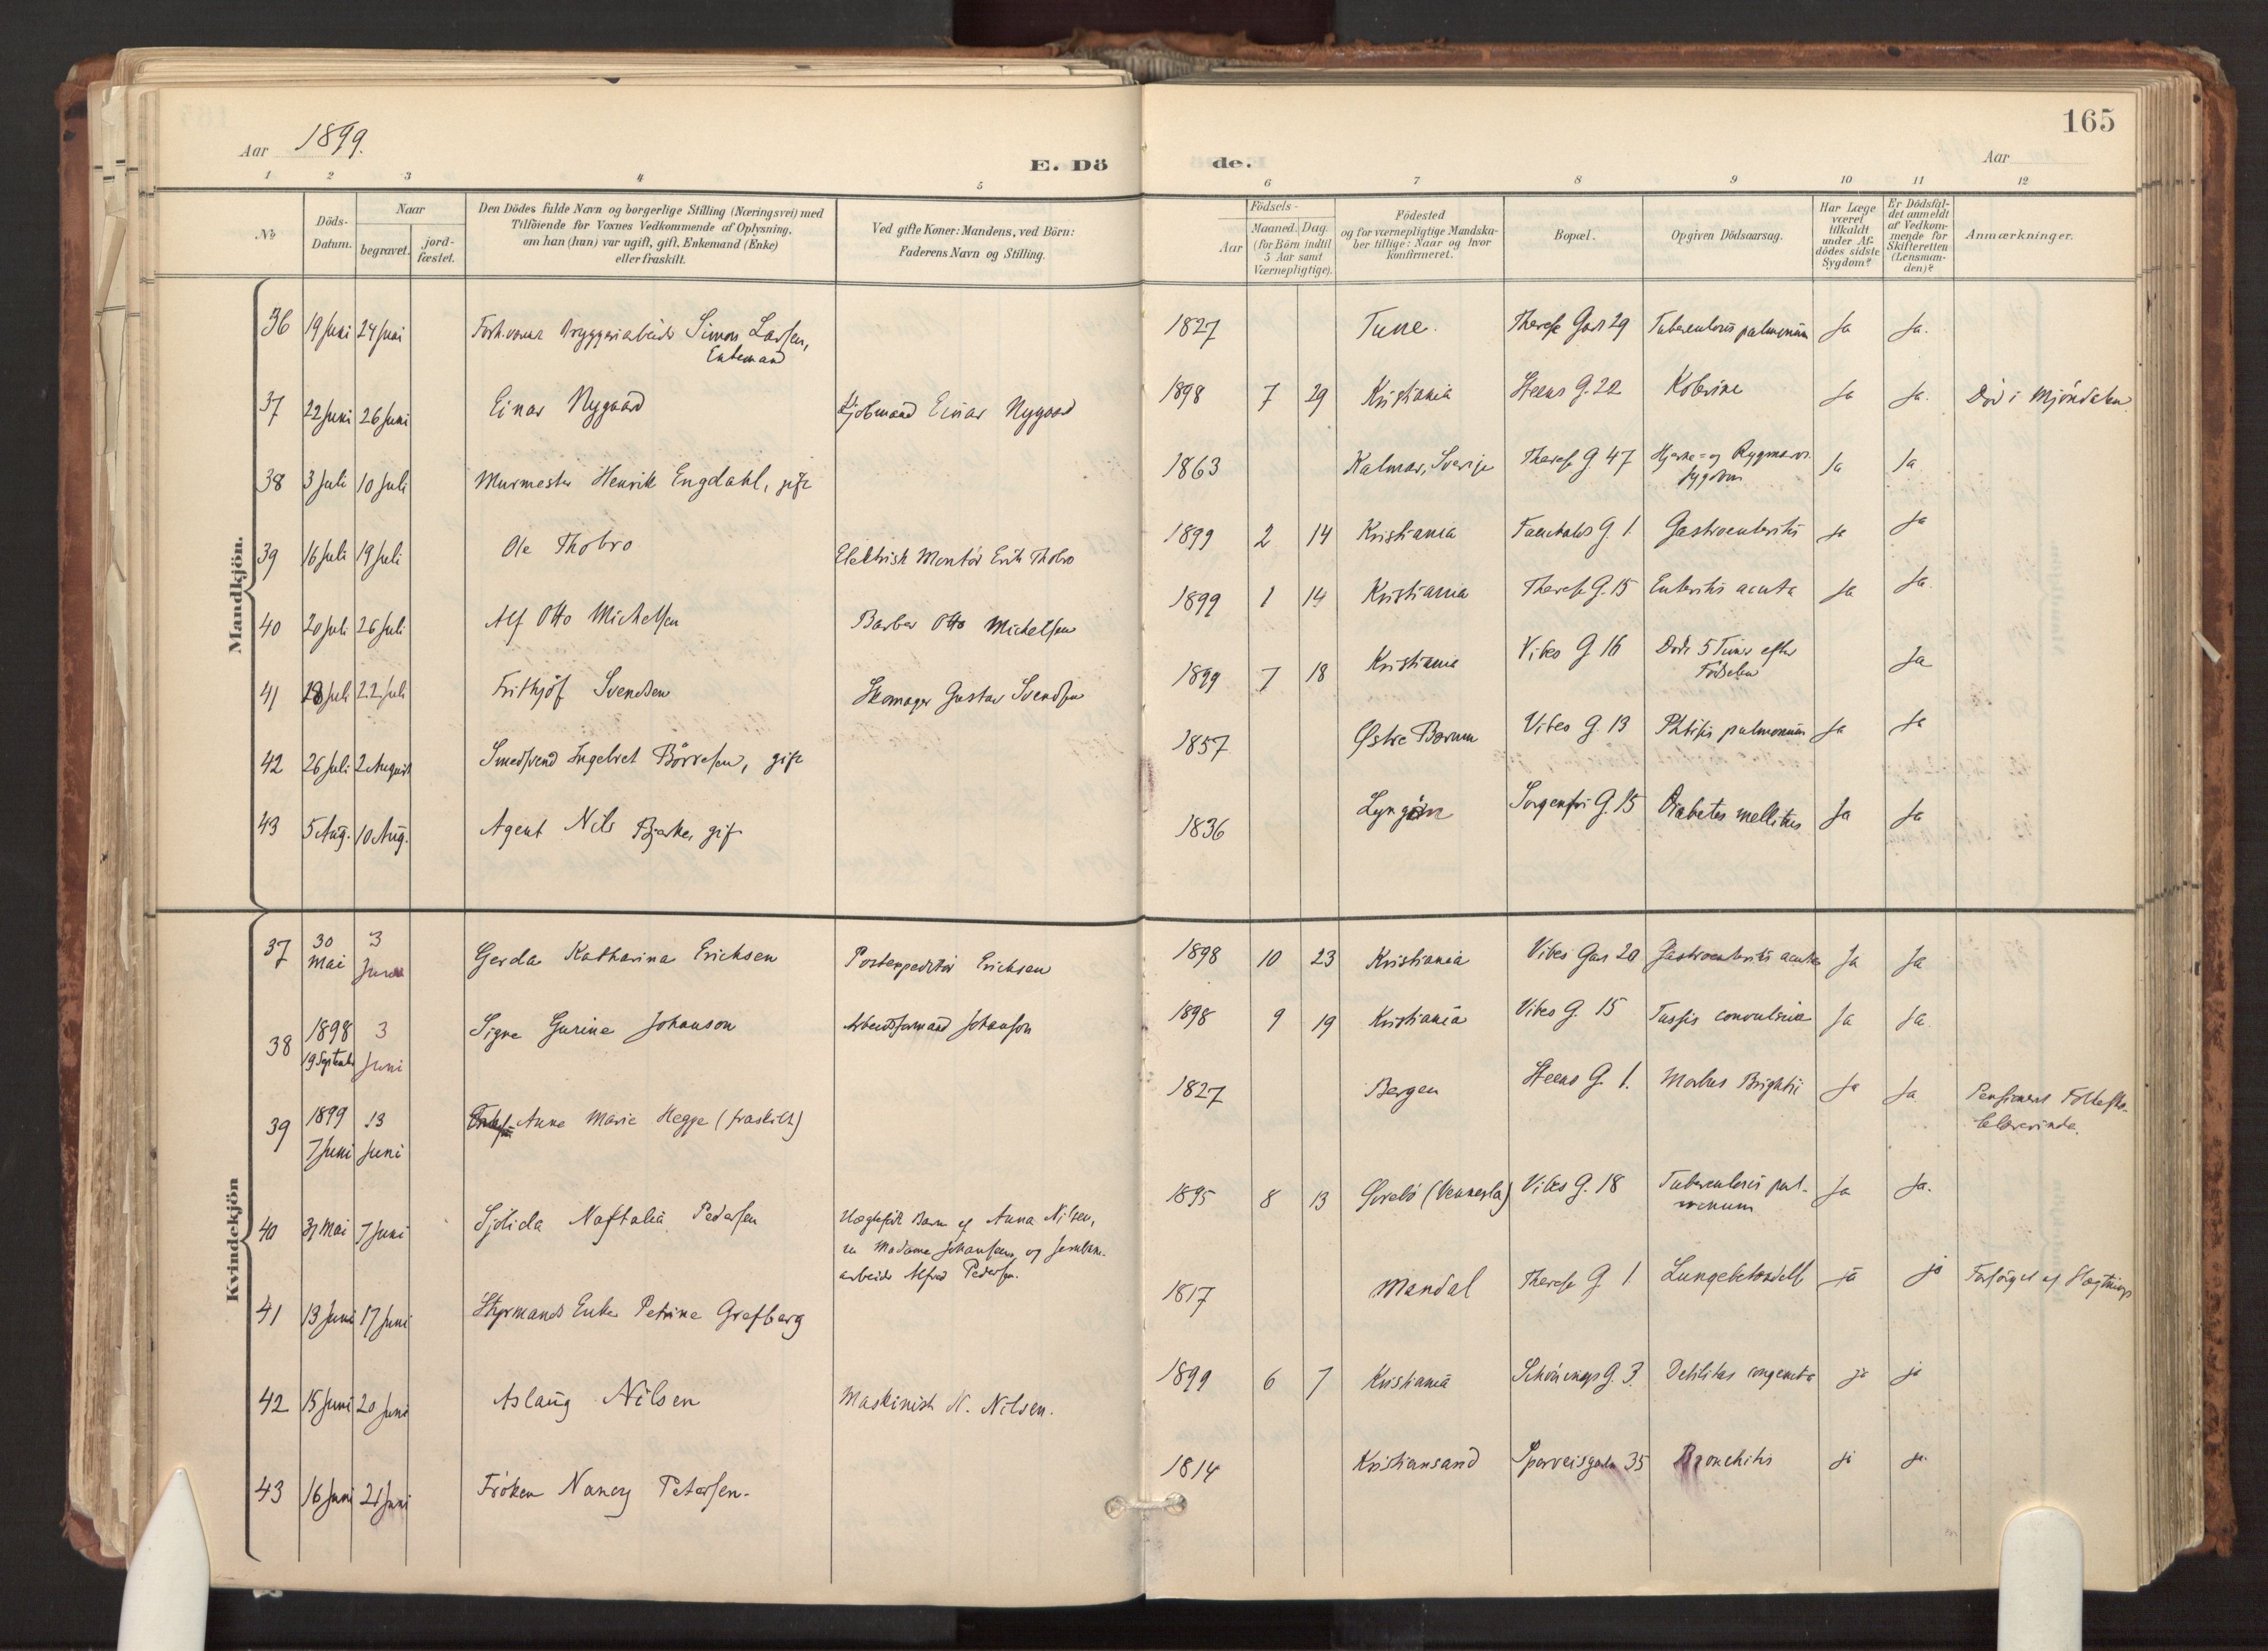 165
Aar 1899.
E. Dö de.
Aar
1 2 3 4 5 6 7 8 9 10 11 12
No
Döds-Datum.
Naar
begravet.
jord-fæstet.
Den Dödes fulde Navn og borgerlige Stilling (Næringsvei) med
Tilföiende for Voxnes Vedkommende af Oplysning,
om han (hun) var ugift, gift, Enkemand (Enke)
eller fraskilt.
Ved gifte Koner: Mandens, ved Börn:
Faderens Navn og Stilling.
Födsels-
Aar
Maaned. Dag.
(for Börn indtil
5 Aar samt
Værnepligtige).
Födested
og for værnepligtige Mandska-
ber tillige: Naar og hvor
konfirmeret.
Bopæl.
Opgiven Dödsaarsag.
Har Læge
været
tilkaldt
under Af-
dödes sidste
Sygdom?
Er Dödsfal-
det anmeldt
af Vedkom-
mende for
Skifteretten
(Lensman-
den)?
Anmærkninger.
Mandkjön.
36 19 Juni 24 Juni Forh.værende Bryggeriarbeider Simon Larsen, 1827 Tune. Therese Gade 29 Tuberculosis pulmonum Ja Ja.
Enkemand
37 22 Juni 26 Juni Einar Nygaard Kjøbmand Einar Nygaard 1898 7 29 Kristiania Steens G. 22 Kolerine Ja Ja. Død i Mjöndalen.
38 3 Juli 10 Juli Murmester Henrik Engdahl, gift 1863 Kalmar, Sverige Therese G 47 Hjerne- og Rygmarvs Ja Ja
sygdom
39 16 Juli 19 Juli Ole Thobro Elektrisk Montör Erik Thobro 1899 2 14 Kristiania G. 1. Gastroenteritis Ja Ja
40 20 Juli 26 Juli Alf Otto Michelsen Barber Otto Michelsen 1899 1 14 Kristiania Therese G. 15 Enteritis acuta Ja Ja.
41 18 Juli 22 Juli Frithjöf Svendsen Skomager Gustav Svendsen 1899 7 18 Kristiania Vibes G 16 Döde 5 Timer efter Ja
Födselen
42 26 Juli 2 August Smedsvend Ingebret Börresen, gift 1857 Østre Bærum Vibes G. 13 Phtisis pulmonum Ja Ja
43 5 Aug. 10 Aug. Agent Nils Bjerke, gift 1836 Lyngör Sorgenfri G. 15 Diabetes mellitus Ja Ja
Kvindekjön
37 30 Mai 3 Juni Gerda Katharina Erichsen Postexpeditör Erichsen 1898 10 23 Kristiania Vibes Gade 20 Gastroenteritis acuta Ja Ja
38 1898 19 September 3 Juni Signe Gurine Johanson Arbeidsformand Johanson 1898 9 19 Kristiania Vibes G. 15 Tussis convulsiva Ja Ja
39 1899 7 Juni 13 Juni Anne Marie Hegge (fraskilt) 1827 Bergen Steens G. 1. Morbus Brightii Ja Ja Pensioneret Folkesko-
lelærerinde.
40 31 Mai 7 Juni Sjölida Naftalia Pedersen Uægtefødt Barn af Anna Nilsen, 1895 8 13 (Vennesla) Vibes G. 18 Tuberculosis pul- Ja Ja.
nu Madame Johansen og Jernbane- monum
arbeider Alfred Pedersen.
41 13 Juni 17 Juni Styrmands Enke Petrine Grefberg 1817 Mandal Therese G 1 Lungebetændelse ja ja Forsörget af Slægtninge
42 15 Juni 20 Juni Aslaug Nilsen Maskinist N. Nilsen. 1899 6 7 Kristiania Schönings G. 3. Debilitas congenita ja ja
43 16 Juni 21 Juni Fröken Nancy Petersen. 1814 Kristiansand Sporveisgaden 35 Bronchitis ja ja